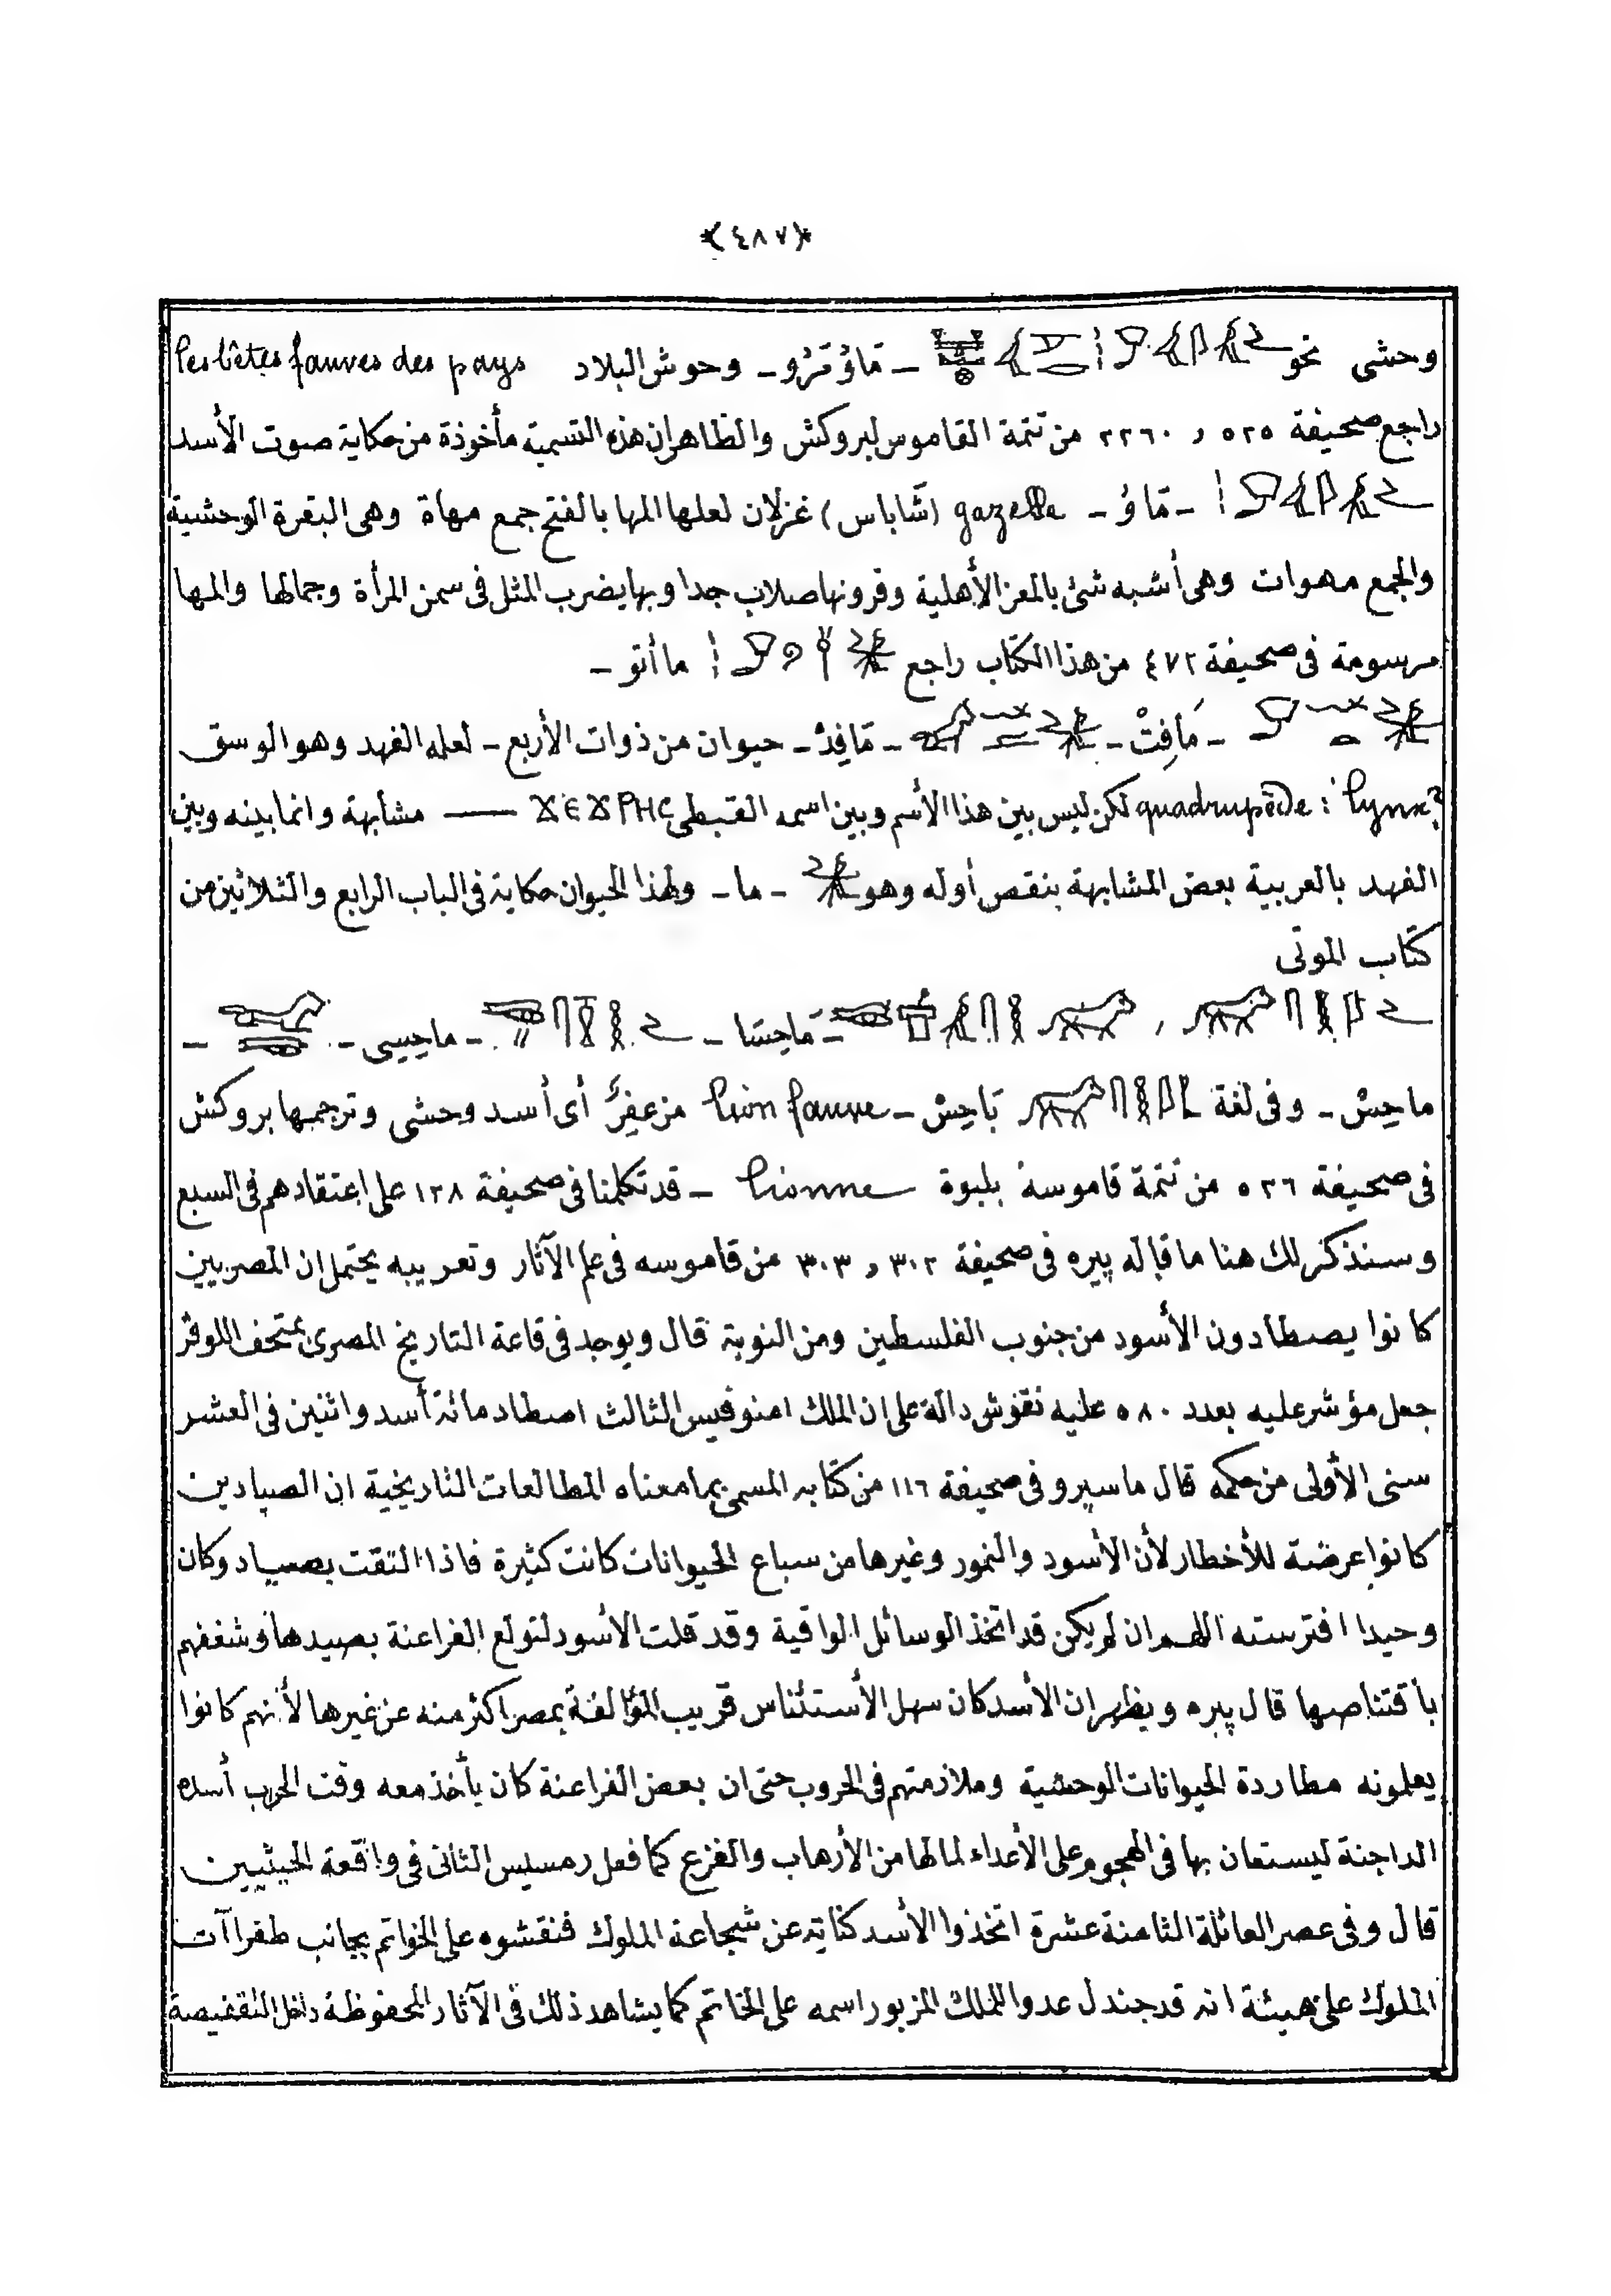 ﴿٤٨٧﴾
وحشى نحو – مَاؤُمَرُو – وحوش البلاد les bêtes fauves des pays
راجع صحيفة ٥٢٥ و ٢٢٦٠ من تتمة القاموس لبروكش والظاهر ان هذه التسمية مأخوذة من حكاية صوت الأسد
– مَاوُ – gazelle (شاباس) غزلان لعلها المها بالفتح جمع مهاة وهى البقرة الوحشية
والجمع مهوات وهى أشبه شئ بالمعز الأهلية وقرونها صلاب جدا وبها يضرب المثل فى سمن المرأة وجمالها والمها
مرسومة فى صحيفة ٤٧٢ من هذا الكتاب راجع ما أتو –
– مَافِتْ – – مَافِدْ – حيوان من ذوات الأربع – لعله الفهد وهو الوسق
quadrupède : lynx? لكن ليس بين هذا الأسم وبين اسمه القبطى مشابهة وانما بينه وبين
الفهد بالعربية بعض المشابهة بنقص أوله وهو – ما – ولهذا الحيوان حكاية فى الباب الرابع والثلاثين من
كتاب الموتى
، – مَاحِسَا – – ماحِسِى – –
ماحِسْ – وفى لغة بَاحِسْ – lion fauve مزعفِرٌ أى أسد وحشى وترجمها بروكش
فى صحيفة ٥٢٦ من تتمة قاموسه بلبوة lionne – قد تكلمنا فى صحيفة ١٢٨ على اعتقادهم فى السبع
وسنذكر لك هنا ما قاله پيره فى صحيفة ٣٠٢ و ٣٠٣ من قاموسه فى علم الآثار وتعريبه يحتمل ان المصريين
كانوا يصطادون الأسود من جنوب الفلسطين ومن النوبة قال ويوجد فى قاعة التاريخ المصرى بمتحف اللوڤر
جعل مؤشر عليه بعدد ٥٨٠ عليه نقوش دالة على ان الملك امنوفيس الثالث اصطاد مائة أسد واثنين فى العشر
سنى الأولى من حكمه قال ماسپرو فى صحيفة ١١٦ من كتابه المسمى بما معناه المطالعات التاريخية ان الصيادين
كانوا عرضة للأخطار لأن الأسود والنمور وغيرها من سباع الحيوانات كانت كثيرة فاذا التقت بصياد وكان
وحيدا افترسته اللهم ان لم يكن قد اتخذ الوسائل الواقية وقد قلت الاسود لتولع الفراعنة بصيدها وشغفهم
بأقتناصها قال پيره ويظهر ان الأسد كان سهل الأستئناس قريب المؤالفة بمصر اكثر منه عن غيرها لأنهم كانوا
يعلمونه مطاردة الحيوانات الوحشية وملازمتهم فى الحروب حتى ان بعض الفراعنة كان يأخذ معه وقت الحرب أسده
الداجنة ليستعان بها فى الهجوم على الأعداء لما لها من الأرهاب والفزع كما فعل رمسيس الثانى فى واقعة الحيثيين
قال وفى عصر العائلة الثامنة عشرة اتخذوا الأسد كناية عن شجاعة الملوك فنقشوه على الخواتم بجانب طغراآت
الملوك على هيئة انه قد جندل عدوا للملك المزبور اسمه على الخاتم كما يشاهد ذلك فى الآثار المحفوظة داخل التقفيصة